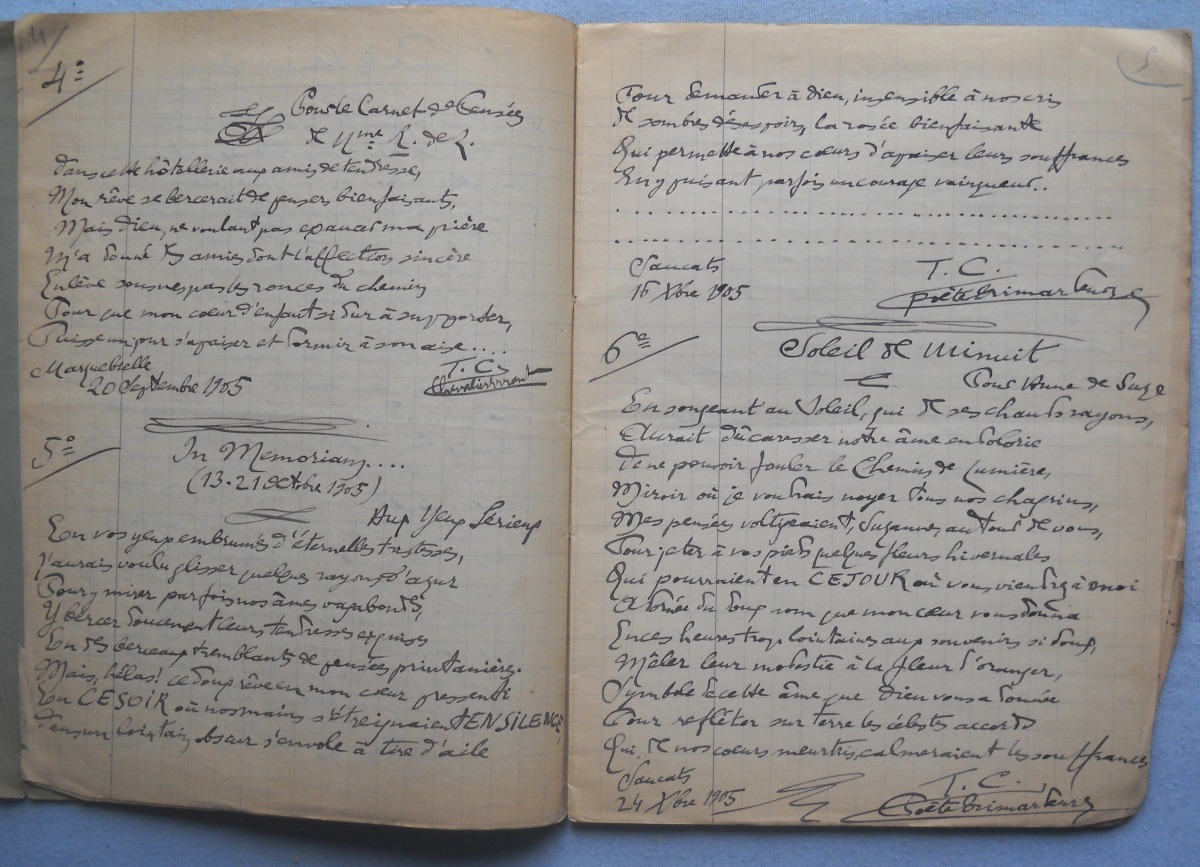 4
4º
Pour le Carnet de Pensées
de Mme L. de L.
Dans cette hôtellerie aux amis de tendresse,
Mon rêve se bercerait de pensers bienfaisants,
Mais Dieu, ne voulant pas exaucer ma prière
M'a donné des amies dont l'affection sincère
Enlève sous mes pas les ronces du chemin
Pour que mon cœur d'enfant si dur à supporter,
Puisse un jour s'apaiser et dormir à son aise....
Marquebielle
20 Septembre 1905
T. C.
Chevalier errant
5º
In Memoriam....
(13-21 Octobre 1905)
Aux Yeux Sérieux
En vos yeux embrumés d'éternelles tristesses,
J'aurais voulu glisser quelques rayons d'azur
Pour y mirer parfois nos âmes vagabondes,
Y bercer doucement leurs tendresses exquises
En des berceaux tremblants de pensées printanières.
Mais, hélas! ce doux rêve en mon cœur pressenti
En CE SOIR où nos mains s'étreignaient EN SILENCE,
Dans un lointain obscur s'envole à tire d'aile
5
Pour demander à Dieu, insensible à nos cris
De sombres désespoirs, la rosée bienfaisante
Qui permette à nos cœurs d'apaiser leurs souffrances
En y puisant parfois un courage vainqueur..
. . . . . . . . . . . . . . . . . . . . . . . . . . . . . . . . . . . .
. . . . . . . . . . . . . . . . . . . . . . . . . . . . . . . . . . . .
Saucats
16 Xbre 1905
T. C.
Poète brimardeur
6º
Soleil de Minuit
Pour Anne de Suze
En songeant au Soleil, qui de ses chauds rayons,
Aurait dû caresser notre âme endolorie
De ne pouvoir fouler le Chemin de Lumière,
Miroir où je voudrais noyer tous nos chagrins,
Mes pensées voltigeaient, Suzanne, autour de vous,
Pour jeter à vos pieds quelques fleurs hivernales
Qui pourraient en CE JOUR où vous viendrez à moi
Ornée du doux nom que mon cœur vous donna
En ces heures trop lointaines aux souvenirs si doux,
Mêler leur modestie à la fleur d'oranger,
Symbole de cette âme que Dieu vous a donnée
Pour refléter sur terre les célestes accords
Qui de nos cœurs meurtris, calmeraient les souffrances
Saucats
24 Xbre 1905
T. C.
Poète brimardeur